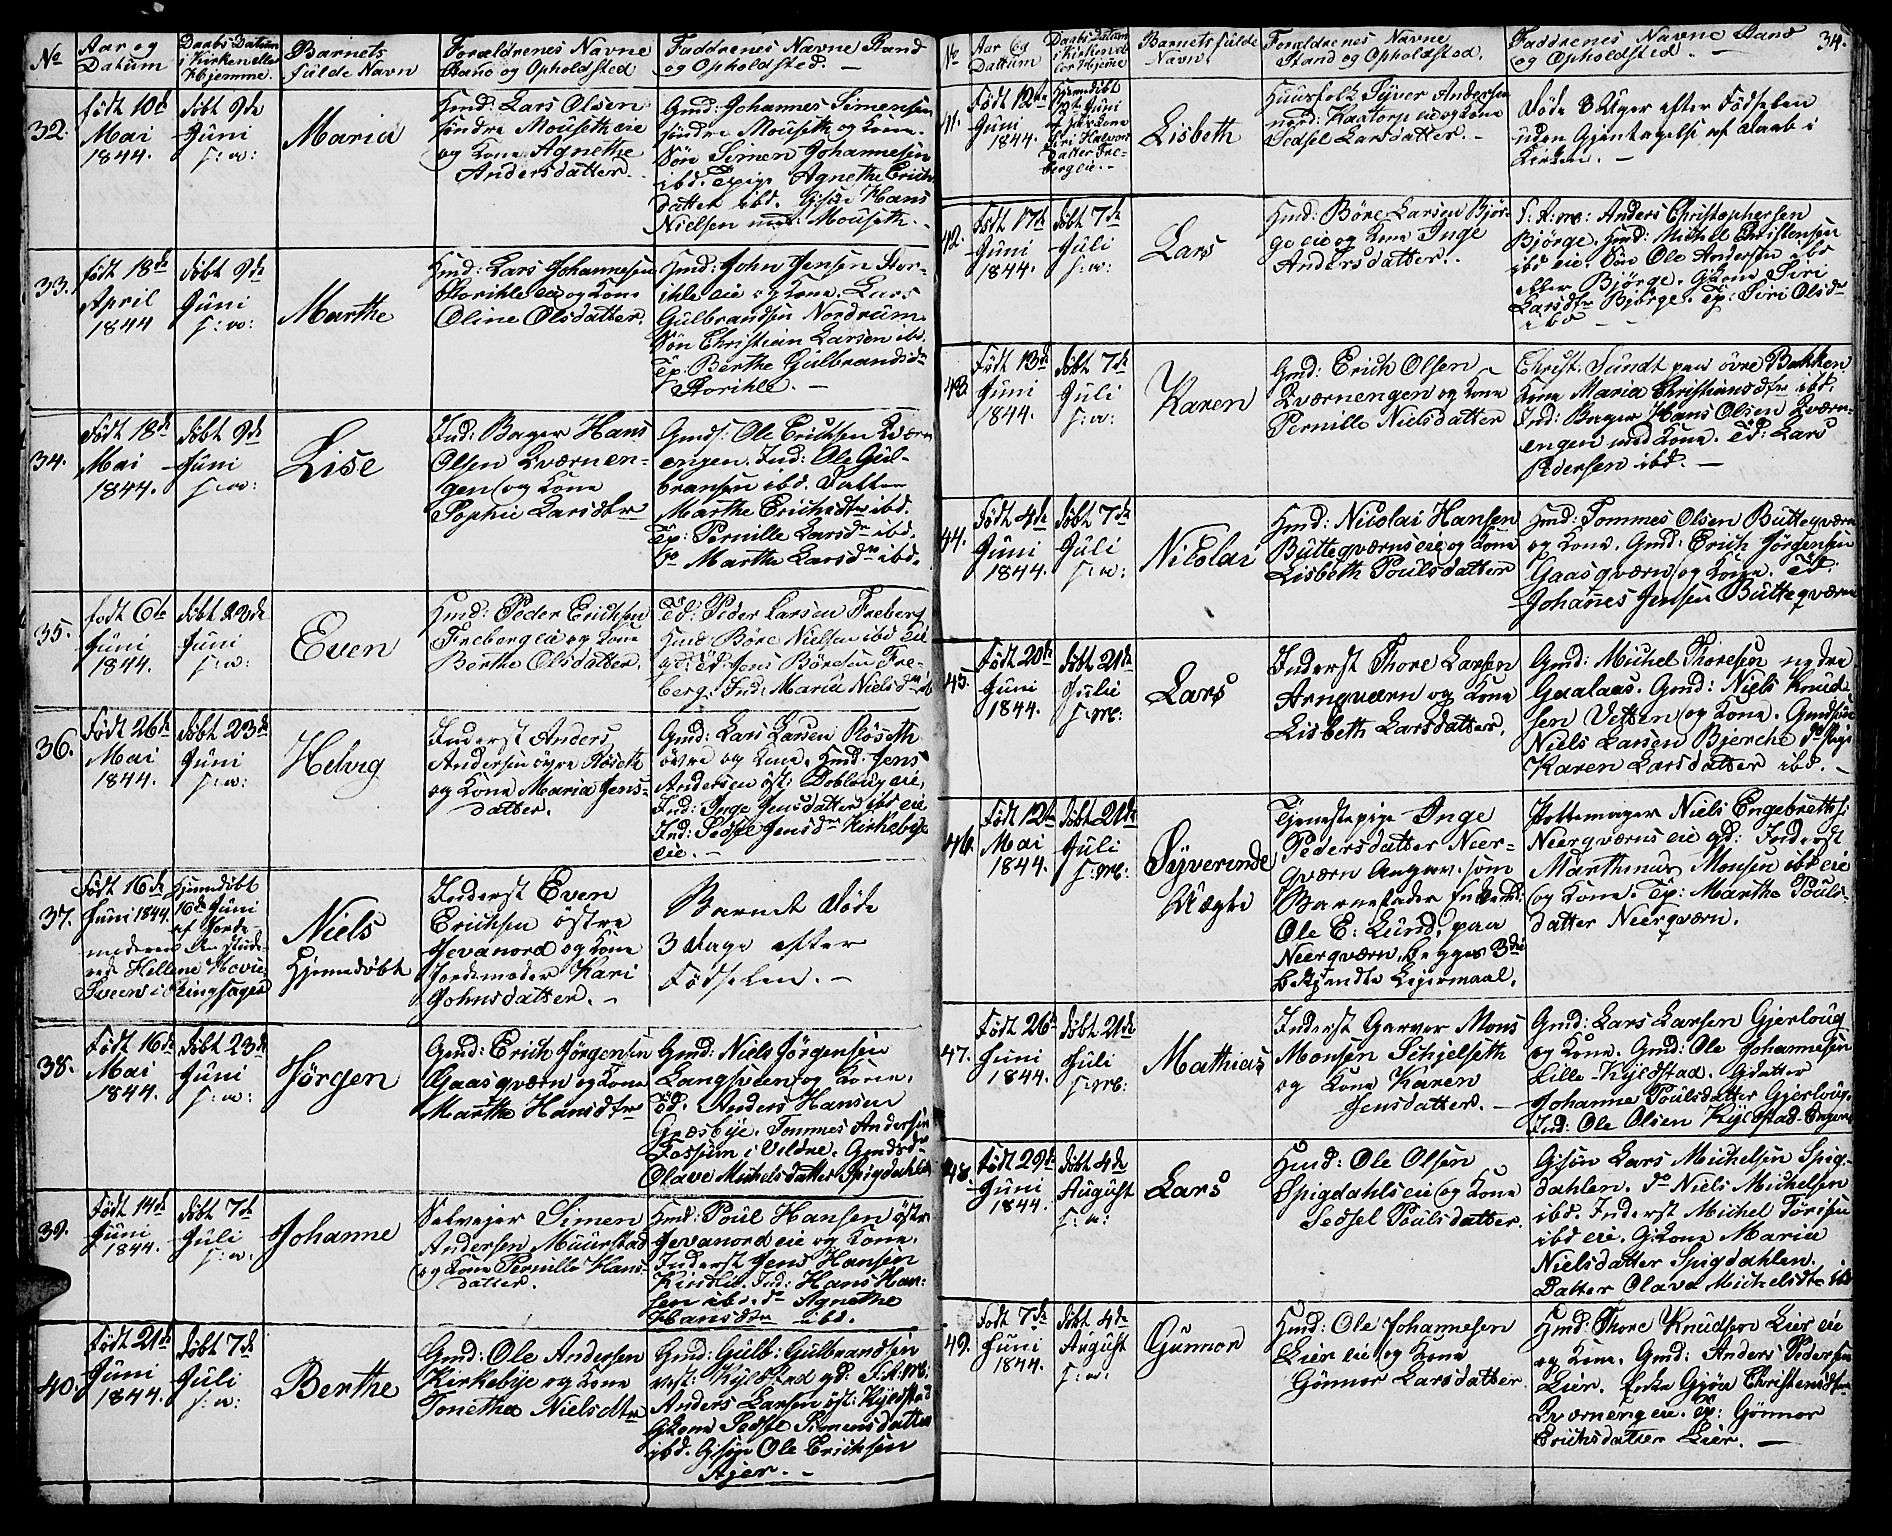 No
Aar og
Datum
Daabs Datum
i Kirken eller
Hjemme.
Barnets
fulde Navn
Forældrenes Navne
Stand og Opholdsted
Faddrenes Navne Stand
og Opholdsted. —
32.
Født 10de
Mai
1844.
Døbt 9de
Juni
s: v:
Maria
Hmd: Lars Olsen
søndre Mouseth eie
og Kone Agnethe
Andersdatter.
Gmd: Johannes Simensen
søndre Mouseth og Kone.
Søn Simen Johannesen
ibd. Tpige Agnethe Erichs
datter ibd. Gsøn Hans
Nielsen nd: Mouseth. -
33.
Født 18de
April
1844
Døbt 9de
Juni
s: v:
Marthe
Hmd: Lars Johannesen
Storihle eie og Kone
Oline Olsdatter.
Hmd: John Jensen Stor-
ihle eie og Kone. Lars
Gulbrandsen Nordrum.
Søn Christian Larsen ibd.
Tp. Berthe Gulbrandsdr
Storihle. —
34.
Født 18de
Mai
1844.
Døbt 9de
Juni
s: v:
Lise
Ind: Bager Hans
Olsen Qværnen-
gen og Kone
Sophie Larsdtr
Gmd: Ole Erichsen Qværn
engen. Ind: Ole Gul-
bransen ibd. Datter
Marthe Erichsdtr ibd.
Tp: Pernille Larsdr ibd.
do Marthe Larsdr ibd.
35.
født 6de
Juni
1844.
Døbt 23de
Juni
s: v:
Even
Hmd: Peder Erichsen
Freberg eie og Kone
Berthe Olsdatter.
Td: Peder Larsen Freberg
Hmd Børe Nielsen ibd eie
gd: Td: Jens Børesen Fre-
berg. Ind: Maria Nielsdr ib
36.
Født 26de
Mai
1844.
Døbt 23de
Juni
s: v:
Helvig
Inderst Anders
Andersen øvre Røseth
og Kone Maria Jens-
datter.
Gmd: Lars Larsen Røseth
øvre og Kone. Hmd: Jens
Andersen øst: Doblougeie,
Ind: Inge Jensdatter ibd eie
Ind: Sedsel Jensdr Kirkebye
eie. —
37.
Født 16de
Juni 1844
Hjemdøbt
16de Juni
af Jorde-
Hellene
Sveen i Ringsager
Niels
Hjemdøbt
Inderst Even
Erichsen østre
Jevanord og Kone
Jordemoder Kari
Johnsdatter. -
Barnet døde
3 Dage efter
Fødselen. —
38.
Født 16de
Mai
1844.
Døbt 23de
Juni
s: v:
Jørgen
Gmd: Erich Jørgensen
Gaasqværn og Kone
Marthe Hansdtr
Gmd: Niels Jørgensen
Langsveen og Kone.
Td: Anders Hansen
Græsbye. Tommes Andersen
Fossum i Veldre. Gmdsdr
Olave Michelsdatter Spigdahlen
39.
Født 14de
Juni
1844.
Døbt 7de
Juli
s: v:
Johanne
Selveier Simen
Andersen Muurstad
og Kone Pernille Hans-
datter.
Hmd: Poul Hansen østre
Jevanord eie og Kone.
Inderst Jens Hansen
Kindlie. Ind: Hans Han-
sen ibd. do Agnethe
Hansdtr ibd.
40.
Født 21de
Juni
1844.
Døbt 7de
Juli
s: v:
Berthe
Gmd: Ole Andersen
Kirkebye og Kone
Tonetha Nielsdtr
Gmd: Gulb: Gulbrandsen
vest: Kyldstad gd: S.A.M.
Anders Larsen øst: Kyldstad
Gkone Sedsel Simensdatter
ibd. Gsøn Ole Erichsen
Ajer. —
No
Aar Og
Dattum
Daabs Datum
i Kirken el-
ler Hjeme
Barnets fulde
Navn
Forældrenes Navne
Stand og Opholdsted.
Faddrenes Navne Stand
og Opholdsted. —
34.
41.
Født 12te
Juni
1844.
Hjemdøbt
Juni
Siri Halvors
datter Fre-
berg eie. -
Lisbeth
Huusfolk Syver Andersen
nord: Kaatorp eie og Kone
Sedsel Larsdatter. —
Døde 3 Uger efter Fødselen
uden Gjentagelse af Daab i
Kirken. —
42.
Født 17de
Juni
1844.
Døbt 7de
Juli
s: v:
Lars
Hmd: Børe Larsen Bjør-
ge eie og Kone Inge
Andersdatter.
S: A: M: Anders Christophersen
Bjørge. Hmd: Michel Christensen
ibd eie. Søn Ole Andersen ibd
eller Bjørge. Gkone Siri
Larsdtr Bjørge. Tp: Siri Olsdr
ibd — —
43.
Født 13de
Juni
1844.
Døbt 7de
Juli
s: v:
Karen
Gmd: Erich Olsen
Qværnengen og Kone
Pernille Nielsdatter
Christ: Sundt paa øvre Bakken
Kone Maria Christiansdtr ibd.
Ind: Bager Hans Olsen Qværn-
engen med Kone. Td: Lars
Pedersen ibd. —
44.
Født 4de
Juni
1844.
Døbt 7de
Juli
s: v:
Nicolai
Hmd: Nicolai Hansen
Butteqværnseie og Kone
Lisbeth Poulsdatter
Hmd: Tommes Olsen Butteqværn
og Kone. Gmd: Erich Jørgensen
Gaasqværn og Kone. Td:
Johannes Jensen Butteqværn
45.
Født 20de
Juni
1844.
Døbt 21de
Julie
s: M:
Lars
Inderst Thore Larsen
Arnqværn og Kone
Lisbeth Larsdatter.
Gmd: Michel Thoresen nedre
Gaalaas. Gmd: Niels Knud-
sen Vetten og Kone. Gmdsøn
Niels Larsen Bjerche do Pige
Karen Larsdatter ibd. —
46.
Født 12te
Mai
1844.
Døbt 21de
Juli
s: M:
Syverinde
Uægte
Tjenestepige Inge
Pedersdatter Neer-
qværn Angav. som
Barnefader
Ole E: Lund, paa
Neerqværn, begges 3die
bekjendte Leiermaal.
Pottemager Niels Engebrethse
Neerqværns eie gd: Inderst
Marthinus Monsen ibd eie
og Kone. Tp: Marthe Pouls-
datter Neerqværn.
47.
Født 26de
Juni
1844.
Døbt 21de
Juli
s: M:
Mathias
Inderst Garver Mons
Monsen Schjelseth
og Kone Karen
Jensdatter. —
Gmd: Lars Larsen Gjerloug
og Kone. Gmd: Ole Johannesen
Lille-Kyldstad. Gdatter
Johanne Poulsdatter Gjerloug.
Ind: Ole Olsen Kyldstad-
48.
Født 29de
Juni
1844.
Døbt 4de
August
s: v:
Lars
Hmd: Ole Olsen
Spigdahlseie og Kone
Sedsel Poulsdatter.
Gsøn Lars Michelsen Spig-
dahlen. do Niels Michelsen
ibd. Inderst Michel Torisen
ibd eie. Gkone Maria
Nielsdatter Spigdahlen.
Datter Olava Michelsdtr ibd
49.
Født 7de
Juni
1844.
Døbt 4de
August
s: v:
Gunnor
Hmd: Ole Johannesen
Lier eie og Kone
Gønnor Larsdatter
Hmd: Thore Knudsen Lier eie
og Kone. Gmd: Anders Pedersen
Lier. Enke Gjøa Christensdtr
Qværneng eie. Tp: Gønnor
Erichsdatter Lier. —